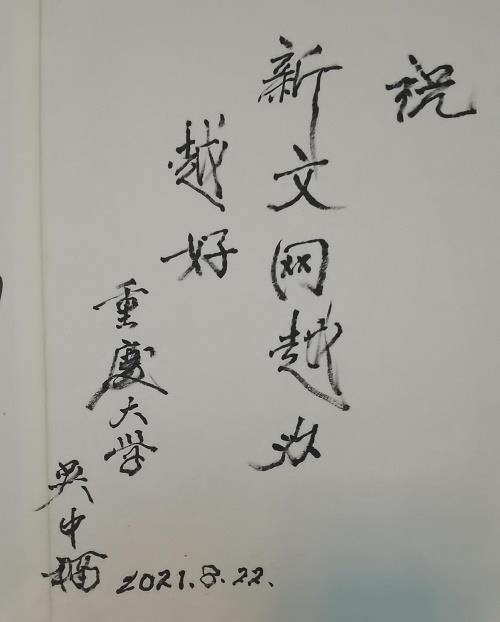 祝
新文网越办
越好
重慶大学
吴中福
2021.8.22.